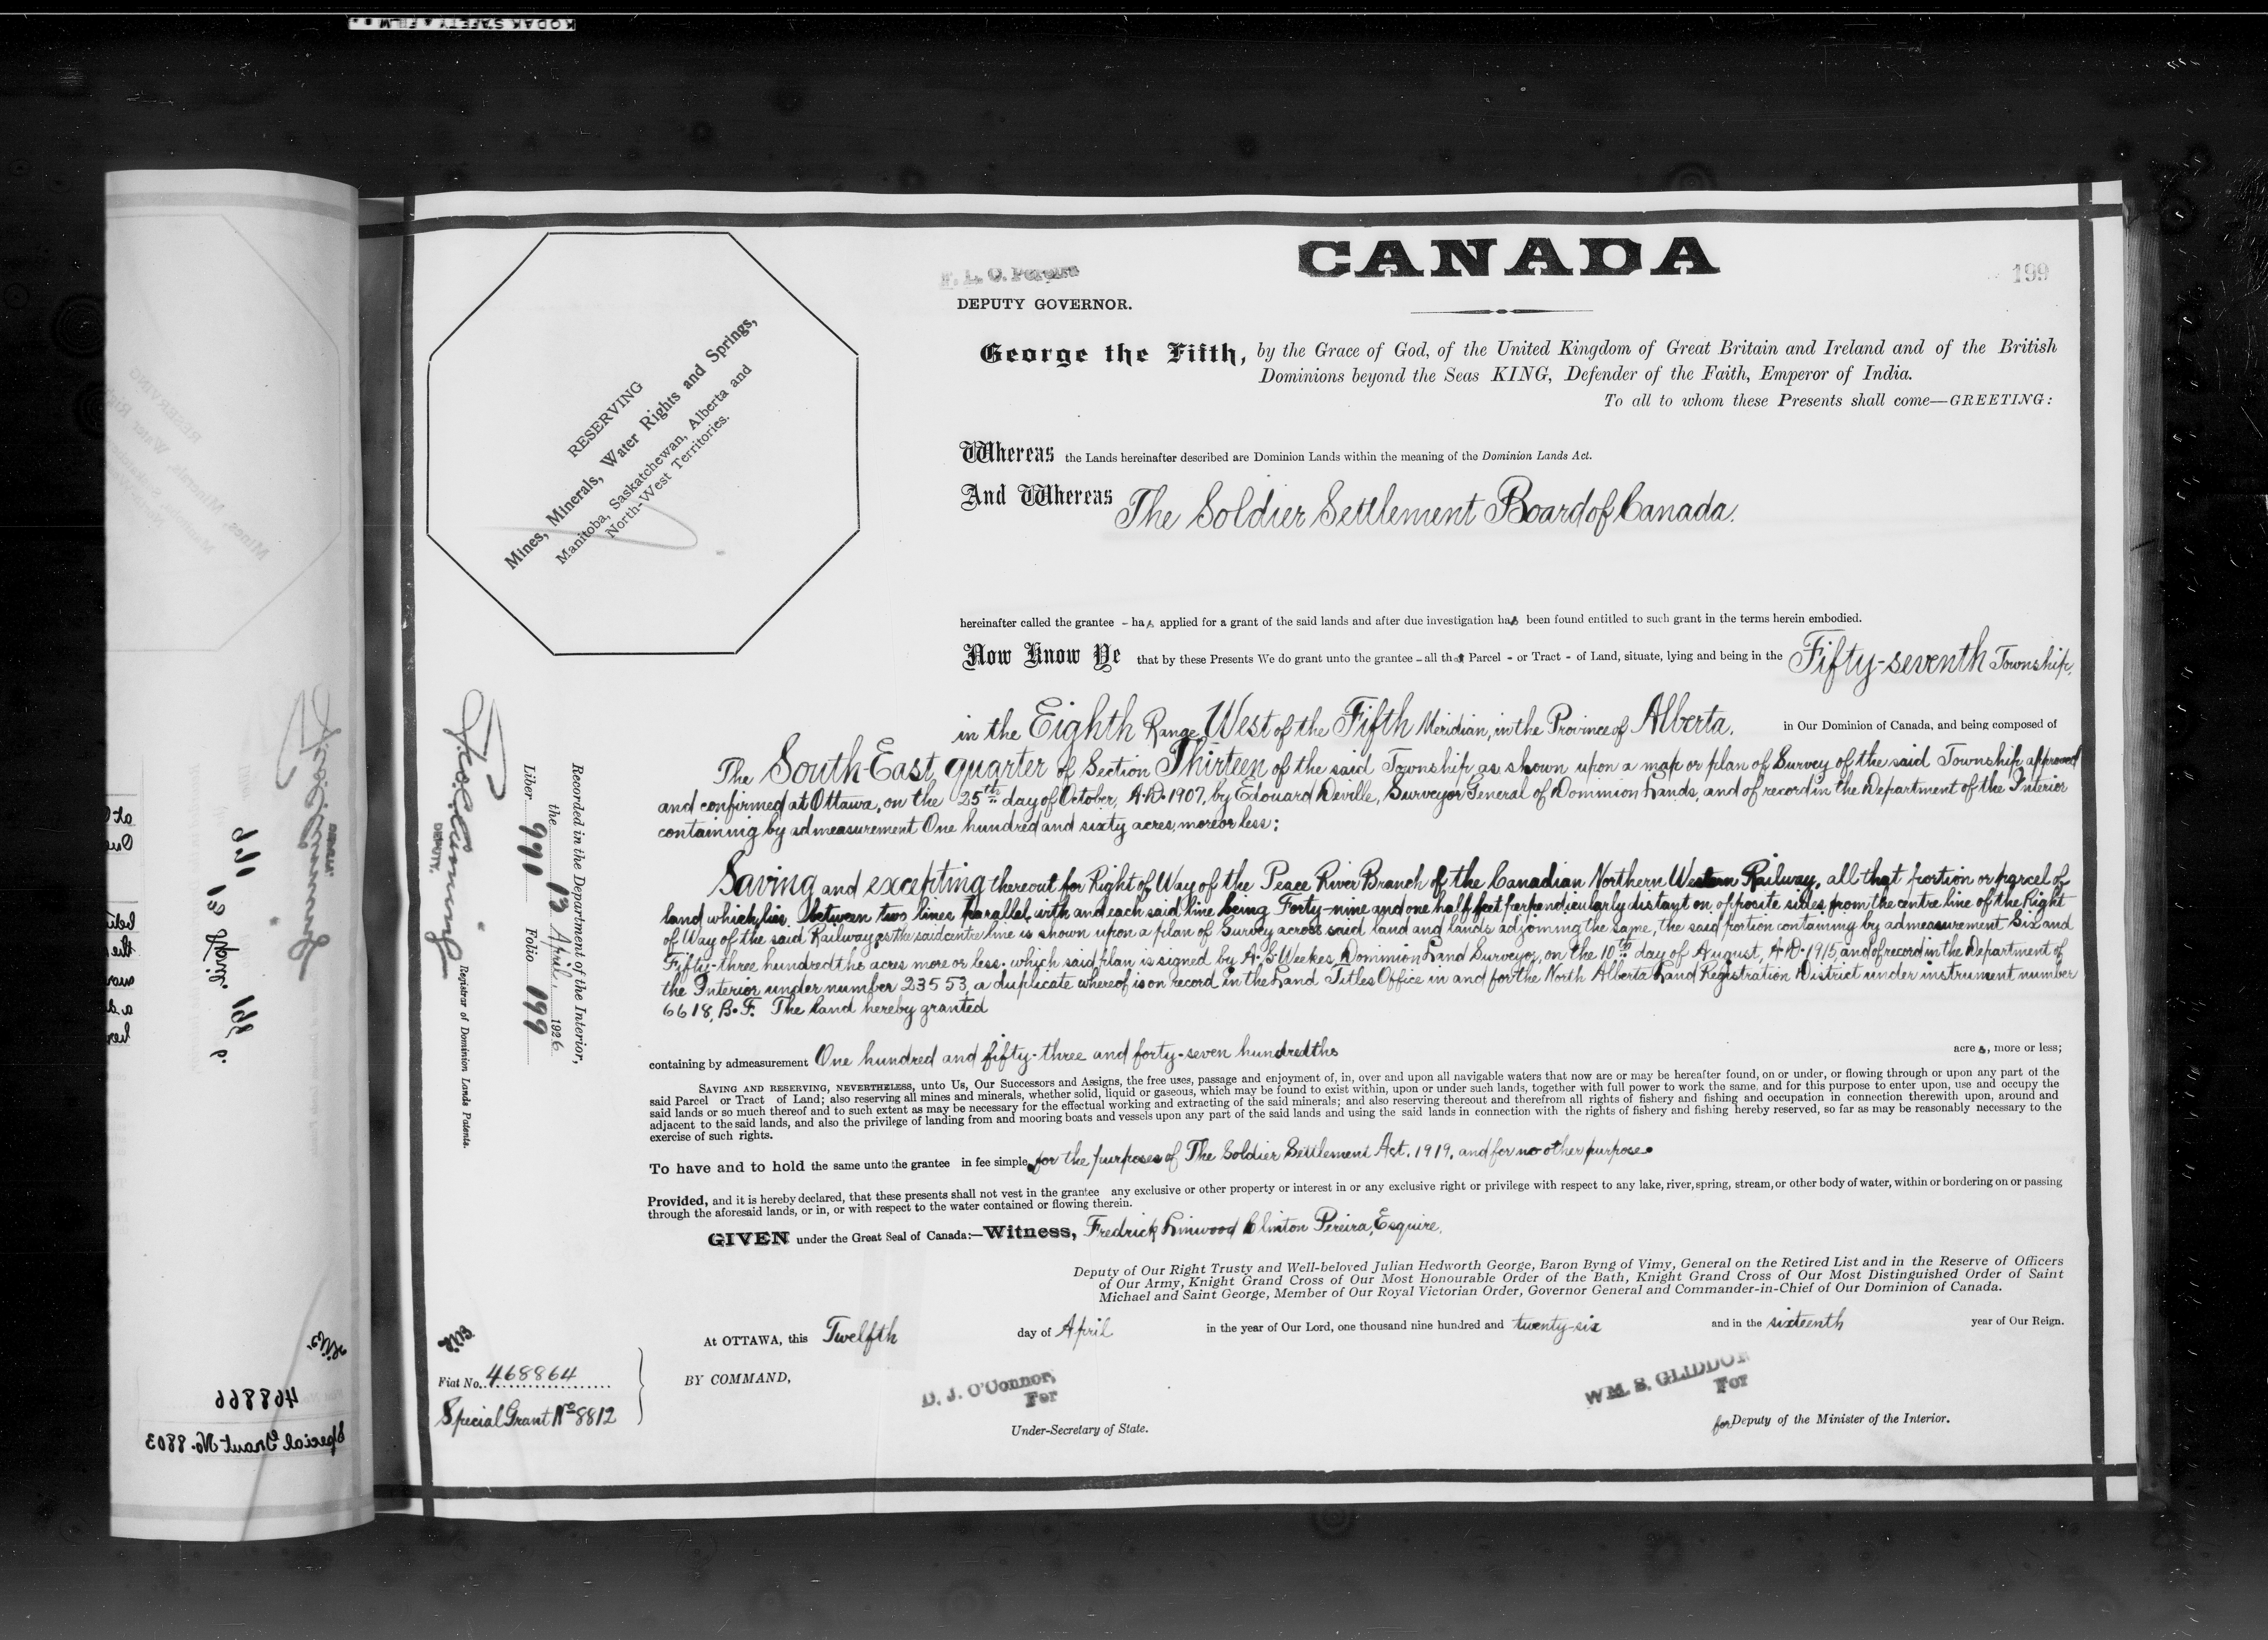 KODAK SAFETY FILM
CANADA
199
F. L. C. Pereira
DEPUTY GOVERNOR.
RESERVING
Mines, Minerals, Water Rights and Springs,
Manitoba, Saskatchewan, Alberta and
North-West Territories.
George the Fifth, by the Grace of God, of the United Kingdom of Great Britain and Ireland and of the British
Dominions beyond the Seas KING, Defender of the Faith, Emperor of India.
To all to whom these Presents shall come—GREETING:
Whereas the Lands hereinafter described are Dominion Lands within the meaning of the Dominion Lands Act.
And Whereas The Soldier Settlement Board of Canada.
hereinafter called the grantee - has applied for a grant of the said lands and after due investigation has been found entitled to such grant in the terms herein embodied.
Now Know Ye that by these Presents We do grant unto the grantee - all that Parcel - or Tract - of Land, situate, lying and being in the Fifty-seventh Township,
in the Eighth Range West of the Fifth Meridian, in the Province of Alberta. in Our Dominion of Canada, and being composed of
The South-East quarter of Section Thirteen of the said Township as shown upon a map or plan of Survey of the said Township approved
and confirmed at Ottawa, on the 25th day of October, A.D. 1907, by Edouard Deville, Surveyor General of Dominion Lands, and of record in the Department of the Interior
containing by admeasurement One hundred and sixty acres, more or less:
Saving and excepting thereout for Right of Way of the Peace River Branch of the Canadian Northern Western Railway, all that portion or parcel of
land which lies between two lines parallel with and each said line being Forty-nine and one half feet perpendicularly distant on opposite sides from the centre line of the Right
of Way of the said Railway, as the said centre line is shown upon a plan of Survey across said land and lands adjoining the same, the said portion containing by admeasurement Six and
Fifty-three hundredths acres more or less. which said plan is signed by A. S. Weekes, Dominion Land Surveyor, on the 10th day of August, A.D. 1915, and of record in the Department of
the Interior under number 23553, a duplicate whereof is on record in the Land Titles Office in and for the North Alberta Land Registration District under instrument number
6618, B.F. The land hereby granted
containing by admeasurement One hundred and fifty-three and forty-seven hundredths acres, more or less;
SAVING AND RESERVING, NEVERTHELESS, unto Us, Our Successors and Assigns, the free uses, passage and enjoyment of, in, over and upon all navigable waters that now are or may be hereafter found, on or under, or flowing through or upon any part of the
said Parcel or Tract of Land; also reserving all mines and minerals, whether solid, liquid or gaseous, which may be found to exist within, upon or under such lands, together with full power to work the same, and for this purpose to enter upon, use and occupy the
said lands or so much thereof and to such extent as may be necessary for the effectual working and extracting of the said minerals; and also reserving thereout and therefrom all rights of fishery and fishing and occupation in connection therewith upon, around and
adjacent to the said lands, and also the privilege of landing from and mooring boats and vessels upon any part of the said lands and using the said lands in connection with the rights of fishery and fishing hereby reserved, so far as may be reasonably necessary to the
exercise of such rights.
To have and to hold the same unto the grantee in fee simple, for the purposes of The Soldier Settlement Act. 1919, and for no other purpose.
Provided, and it is hereby declared, that these presents shall not vest in the grantee any exclusive or other property or interest in or any exclusive right or privilege with respect to any lake, river, spring, stream, or other body of water, within or bordering on or passing
through the aforesaid lands, or in, or with respect to the water contained or flowing therein.
GIVEN under the Great Seal of Canada:—Witness, Fredrick Linwood Clinton Pereira, Esquire,
Deputy of Our Right Trusty and Well-beloved Julian Hedworth George, Baron Byng of Vimy, General on the Retired List and in the Reserve of Officers
of Our Army, Knight Grand Cross of Our Most Honourable Order of the Bath, Knight Grand Cross of Our Most Distinguished Order of Saint
Michael and Saint George, Member of Our Royal Victorian Order, Governor General and Commander-in-Chief of Our Dominion of Canada.
At OTTAWA, this Twelfth day of April in the year of Our Lord, one thousand nine hundred and twenty-six and in the sixteenth year of Our Reign.
BY COMMAND,
D. J. O'Connor,
For
Under-Secretary of State.
WM. S. GLIDDON
For
for Deputy of the Minister of the Interior.
Recorded in the Department of the Interior,
the 13 April, 1926
Liber 990 Folio 199
DEPUTY.
Registrar of Dominion Lands Patents.
Fiat No. 468864
Special Grant No 8812
468866
Special Grant No. 8803